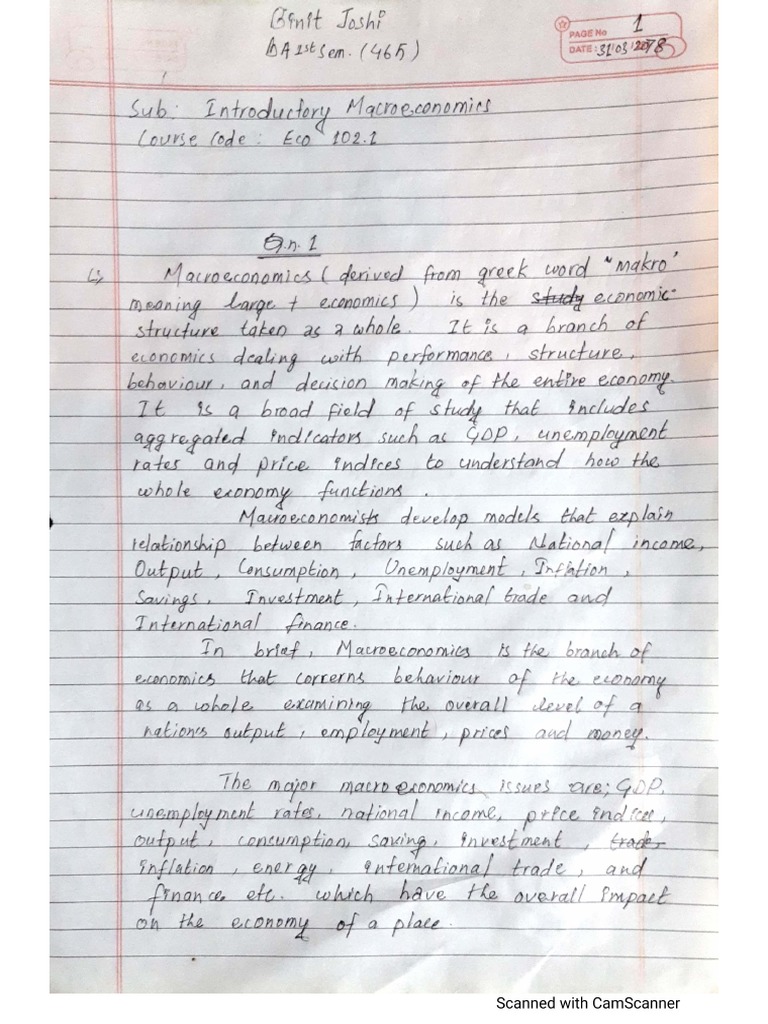 Binit Joshi
BA 1st sem. (465)
PAGE No 1
DATE: 31/03/2078
Sub: Introductory Macroeconomics
Course Code: Eco 102.1
Q.n. 1
Macroeconomics (derived from greek word "makro"
meaning large + economics) is the study economic
structure taken as a whole. It is a branch of
economics dealing with performance, structure,
behaviour, and decision making of the entire economy.
It is a broad field of study that includes
aggregated indicators such as GDP, unemployment
rates and price indices to understand how the
whole economy functions.
Macroeconomists develop models that explain
relationship between factors such as National income,
Output, Consumption, Unemployment, Inflation,
Savings, Investment, International trade and
International finance.
In brief, Macroeconomics is the branch of
economics that concerns behaviour of the economy
as a whole examining the overall level of a
nation's output, employment, prices and money.
The major macro economics issues are; GDP,
unemployment rates, national income, price indices,
output, consumption, saving, investment, trade,
inflation, energy, international trade, and
finance etc. which have the overall impact
on the economy of a place.
Scanned with CamScanner